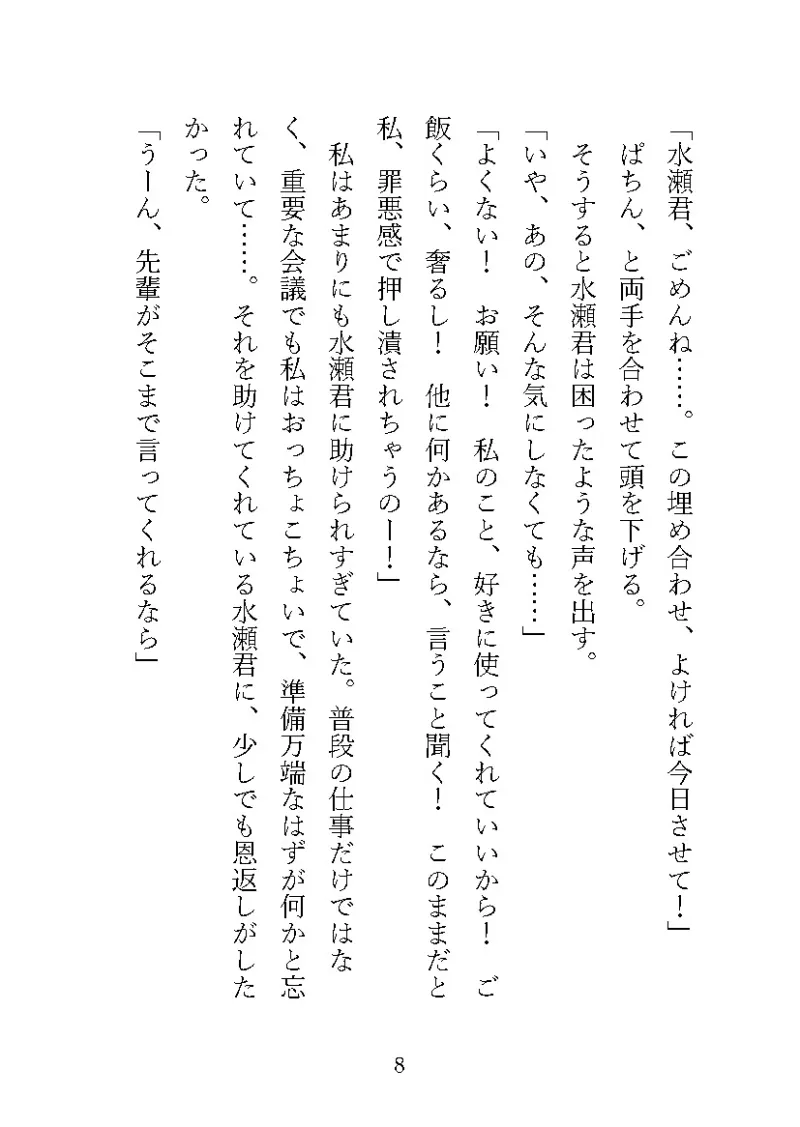 「水瀬君、ごめんね……。この埋め合わせ、よければ今日させて！」
　ぱちん、と両手を合わせて頭を下げる。
　そうすると水瀬君は困ったような声を出す。
「いや、あの、そんな気にしなくても……」
「よくない！　お願い！　私のこと、好きに使ってくれていいから！　ご
飯くらい、奢るし！　他に何かあるなら、言うこと聞く！　このままだと
私、罪悪感で押し潰されちゃうのー！」
　私はあまりにも水瀬君に助けられすぎていた。普段の仕事だけではな
く、重要な会議でも私はおっちょこちょいで、準備万端なはずが何かと忘
れていて……。それを助けてくれている水瀬君に、少しでも恩返しがした
かった。
「うーん、先輩がそこまで言ってくれるなら」
8